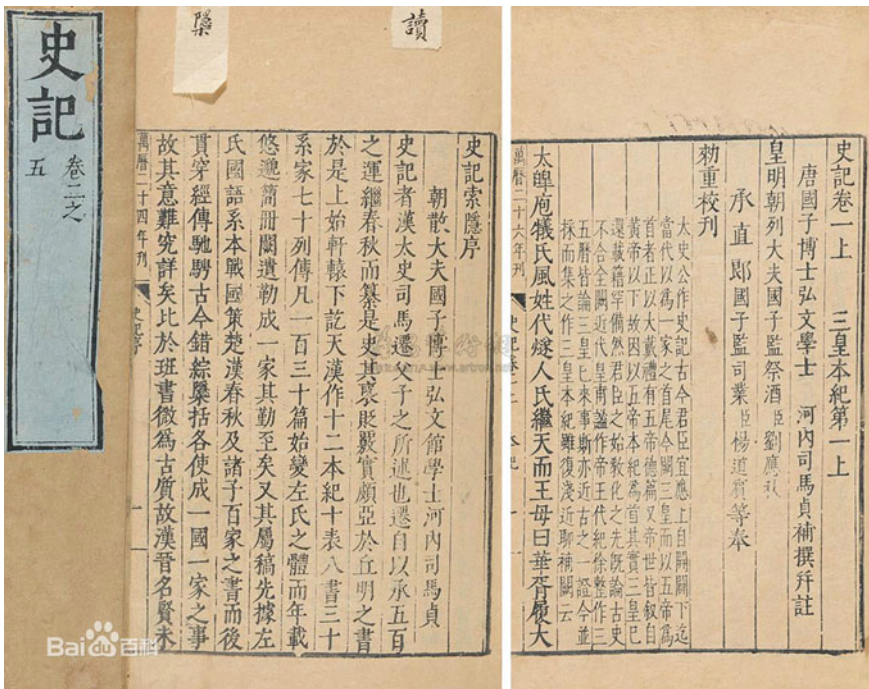 史記
卷二之
五
讀
史記索隱序
朝散大夫國子博士弘文館學士河內司馬貞
史記者漢太史司馬遷父子之所述也遷自以承五百
之運繼春秋而纂是史其襃貶覈實頗亞於丘明之書
於是上始軒轅下訖天漢作十二本紀十表八書三十
系家七十列傳凡一百三十篇始變左氏之體而年載
悠邈簡冊闕遺勒成一家其勤至矣又其屬稿先據左
氏國語系本戰國策楚漢春秋及諸子百家之書而後
貫穿經傳馳騁古今錯綜櫽括各使成一國一家之事
故其意難究詳矣比於班書微爲古質故漢晉名賢未
萬曆二十四年刊
史記序
史記卷一上 三皇本紀第一上
唐國子博士弘文學士 河內司馬貞補撰幷註
皇明朝列大夫國子監祭酒臣劉應秋
承直郎國子監司業臣楊道賓等奉
勑重校刊
太史公作史記古今君臣宜應上自開闢下迄
當代以爲一家之首尾今闕三皇而以五帝爲
首者正以大戴禮有五帝德篇又帝世皆叙自
黃帝以下故因以五帝本紀爲首其實三皇已
還載籍罕備然君臣之始教化之先既論古史
不合全闕近代皇甫謐作帝王代紀徐整作三
五曆皆論三皇已來事斯亦近古之一證今並
採而集之作三皇本紀雖復淺近聊補闕云
太皥庖犧氏風姓代燧人氏繼天而王母曰華胥履大
萬曆二十六年刊
Bai百科